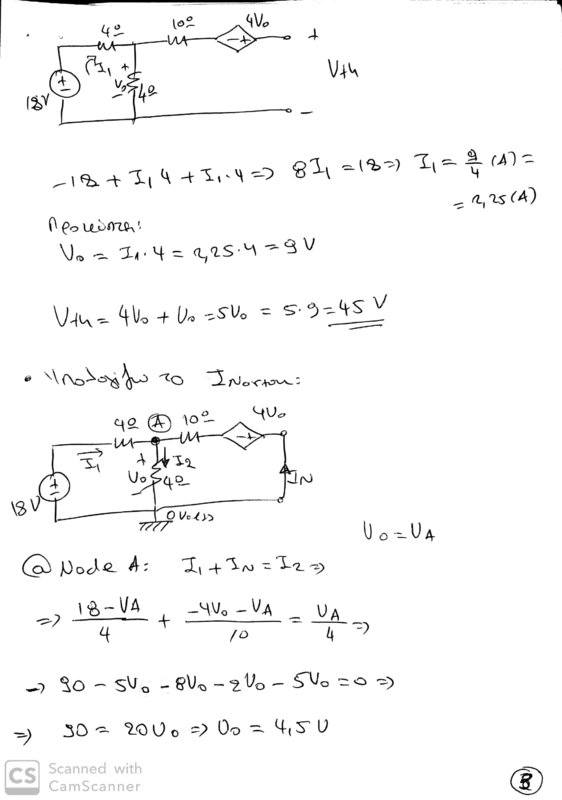 4Ω 10Ω 4V₀
- + +
18V + I₁ + V₀ 4Ω Vth
-
-18 + I₁4 + I₁·4 => 8I₁ = 18 => I₁ = 9/4 (A) =
= 2,25 (A)
Προκύπτει:
V₀ = I₁·4 = 2,25·4 = 9V
Vth = 4V₀ + V₀ = 5V₀ = 5·9 = 45 V
• Υπολογίζω το INorton:
4Ω A 10Ω 4V₀
- +
I₁ + I₂ IN
18V + V₀ 4Ω
0Volts
V₀ = VA
@ Node A: I₁ + IN = I₂ =>
=> (18-VA)/4 + (-4V₀-VA)/10 = VA/4 =>
→ 90 - 5V₀ - 8V₀ - 2V₀ - 5V₀ = 0 =>
=> 90 = 20V₀ => V₀ = 4,5V
CS Scanned with
CamScanner
3